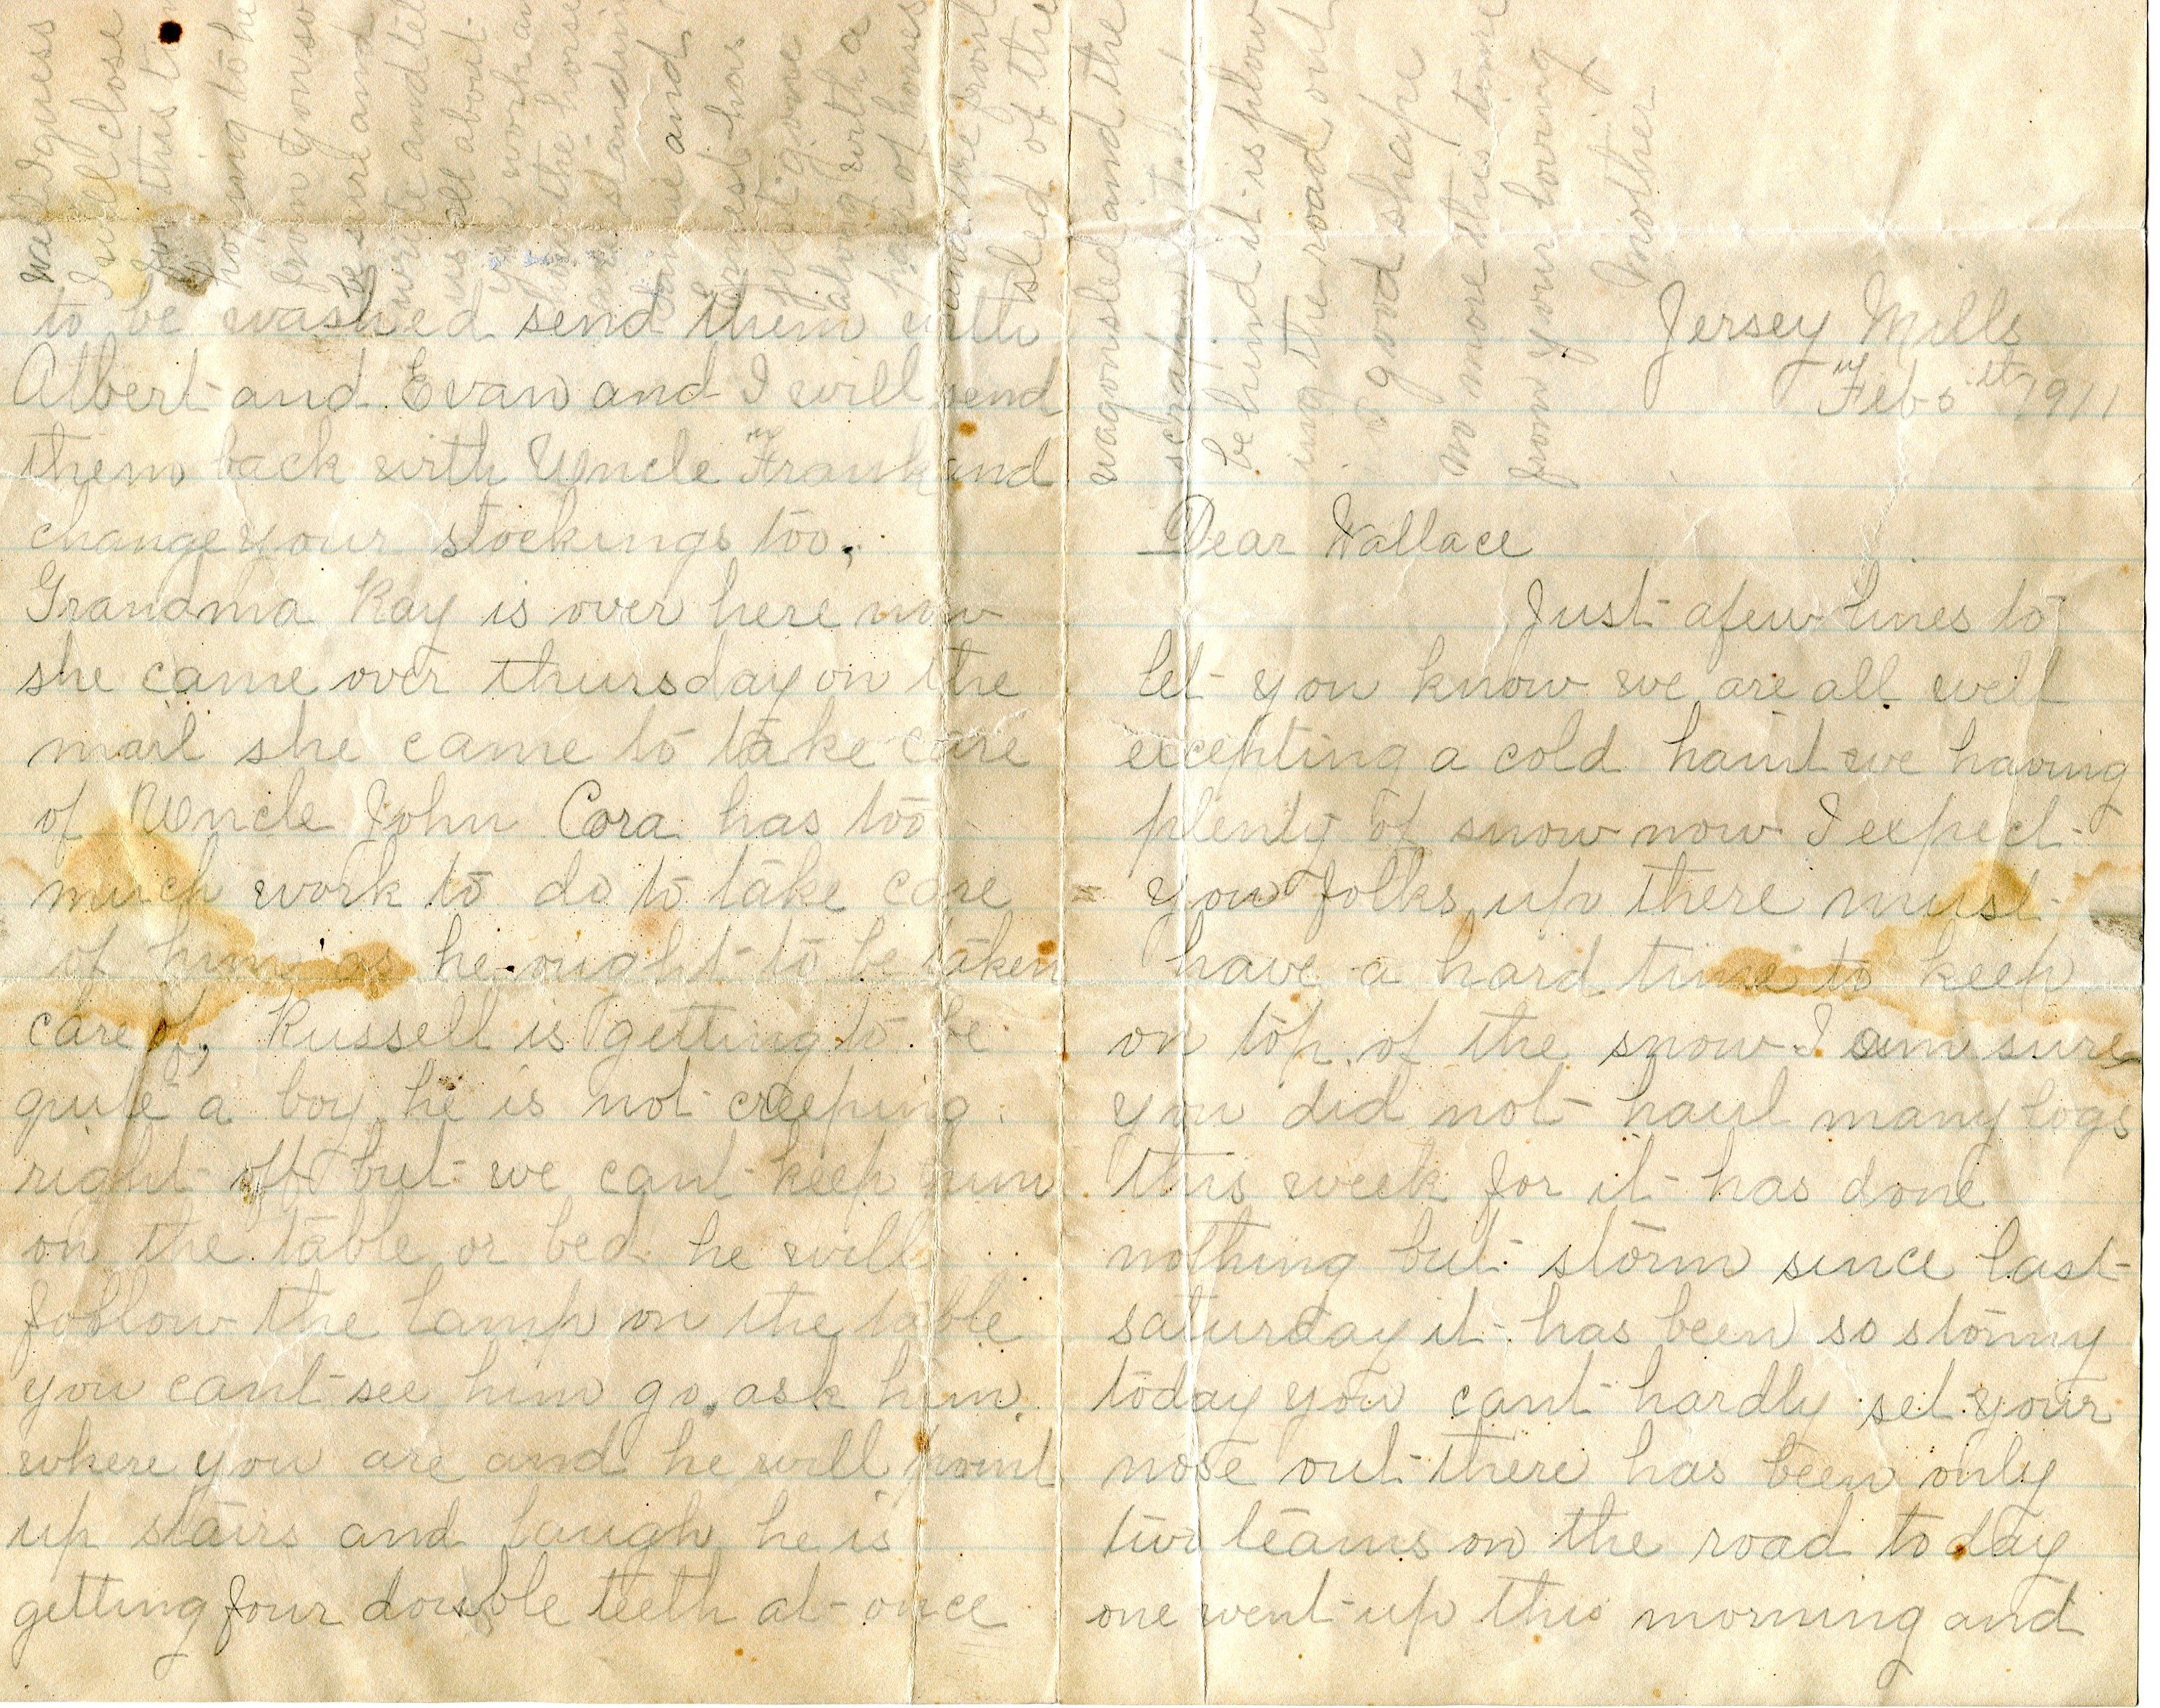 Jersey Mills
Feb 5 1911
Dear Wallace
Just a few lines to
let you know we are all well
excepting a cold haint we having
plenty of snow now I expect
you folks up there must
have a hard time to keep
on top of the snow I am sure
you did not haul many logs
this week for it has done
nothing but storm since last
saturday it has been so stormy
today you cant hardly set your
nose out there has been only
two teams on the road today
one went up this morning and
to be washed send them with
Albert and Evan and I will send
them back with Uncle Frank and
change your stockings too.
Grandma Ray is over here now
she came over thursday on the
mail she came to take care
of Uncle John Cora has too
much work to do to take care
of him as he ought to be taken
care of. Russell is getting to be
quite a boy he is not creeping
right off but we cant keep him
on the table or bed he will
follow the lamp on the table
you cant see him go. ask him
where you are and he will point
up stairs and laugh he is
getting four double teeth at once
well I guess
I will close
for this time
hoping to he
from you so
be sure and
write and tel
us all about
your work an
how the horse
are standin
and
Ernest has
just gone
along with a
team of horses
and the front
sled of the
wagonsled and the
behind it is plow
ing the road out
good shape
no more this time
from your loving
Mother